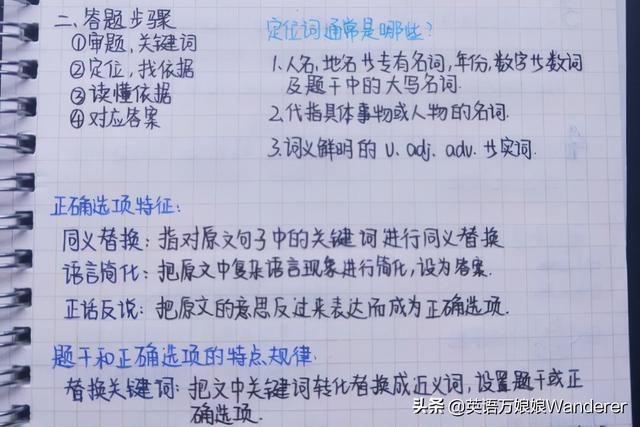 二、答题步骤
①审题,关键词
②定位,找依据
③读懂依据
④对应答案
定位词通常是哪些?
1.人名,地名等专有名词,年份,数字等数词
及题干中的大写名词.
2.代指具体事物或人物的名词.
3.词义鲜明的 v. adj. adv. 等实词.
正确选项特征:
同义替换: 指对原文句子中的关键词进行同义替换
语言简化: 把原文中复杂语言现象进行简化,设为答案.
正话反说: 把原文的意思反过来表达而成为正确选项.
题干和正确选项的特点规律.
替换关键词: 把文中关键词转化替换成近义词,设置题干或正
确选项.
头条 @英语万娘娘Wanderer